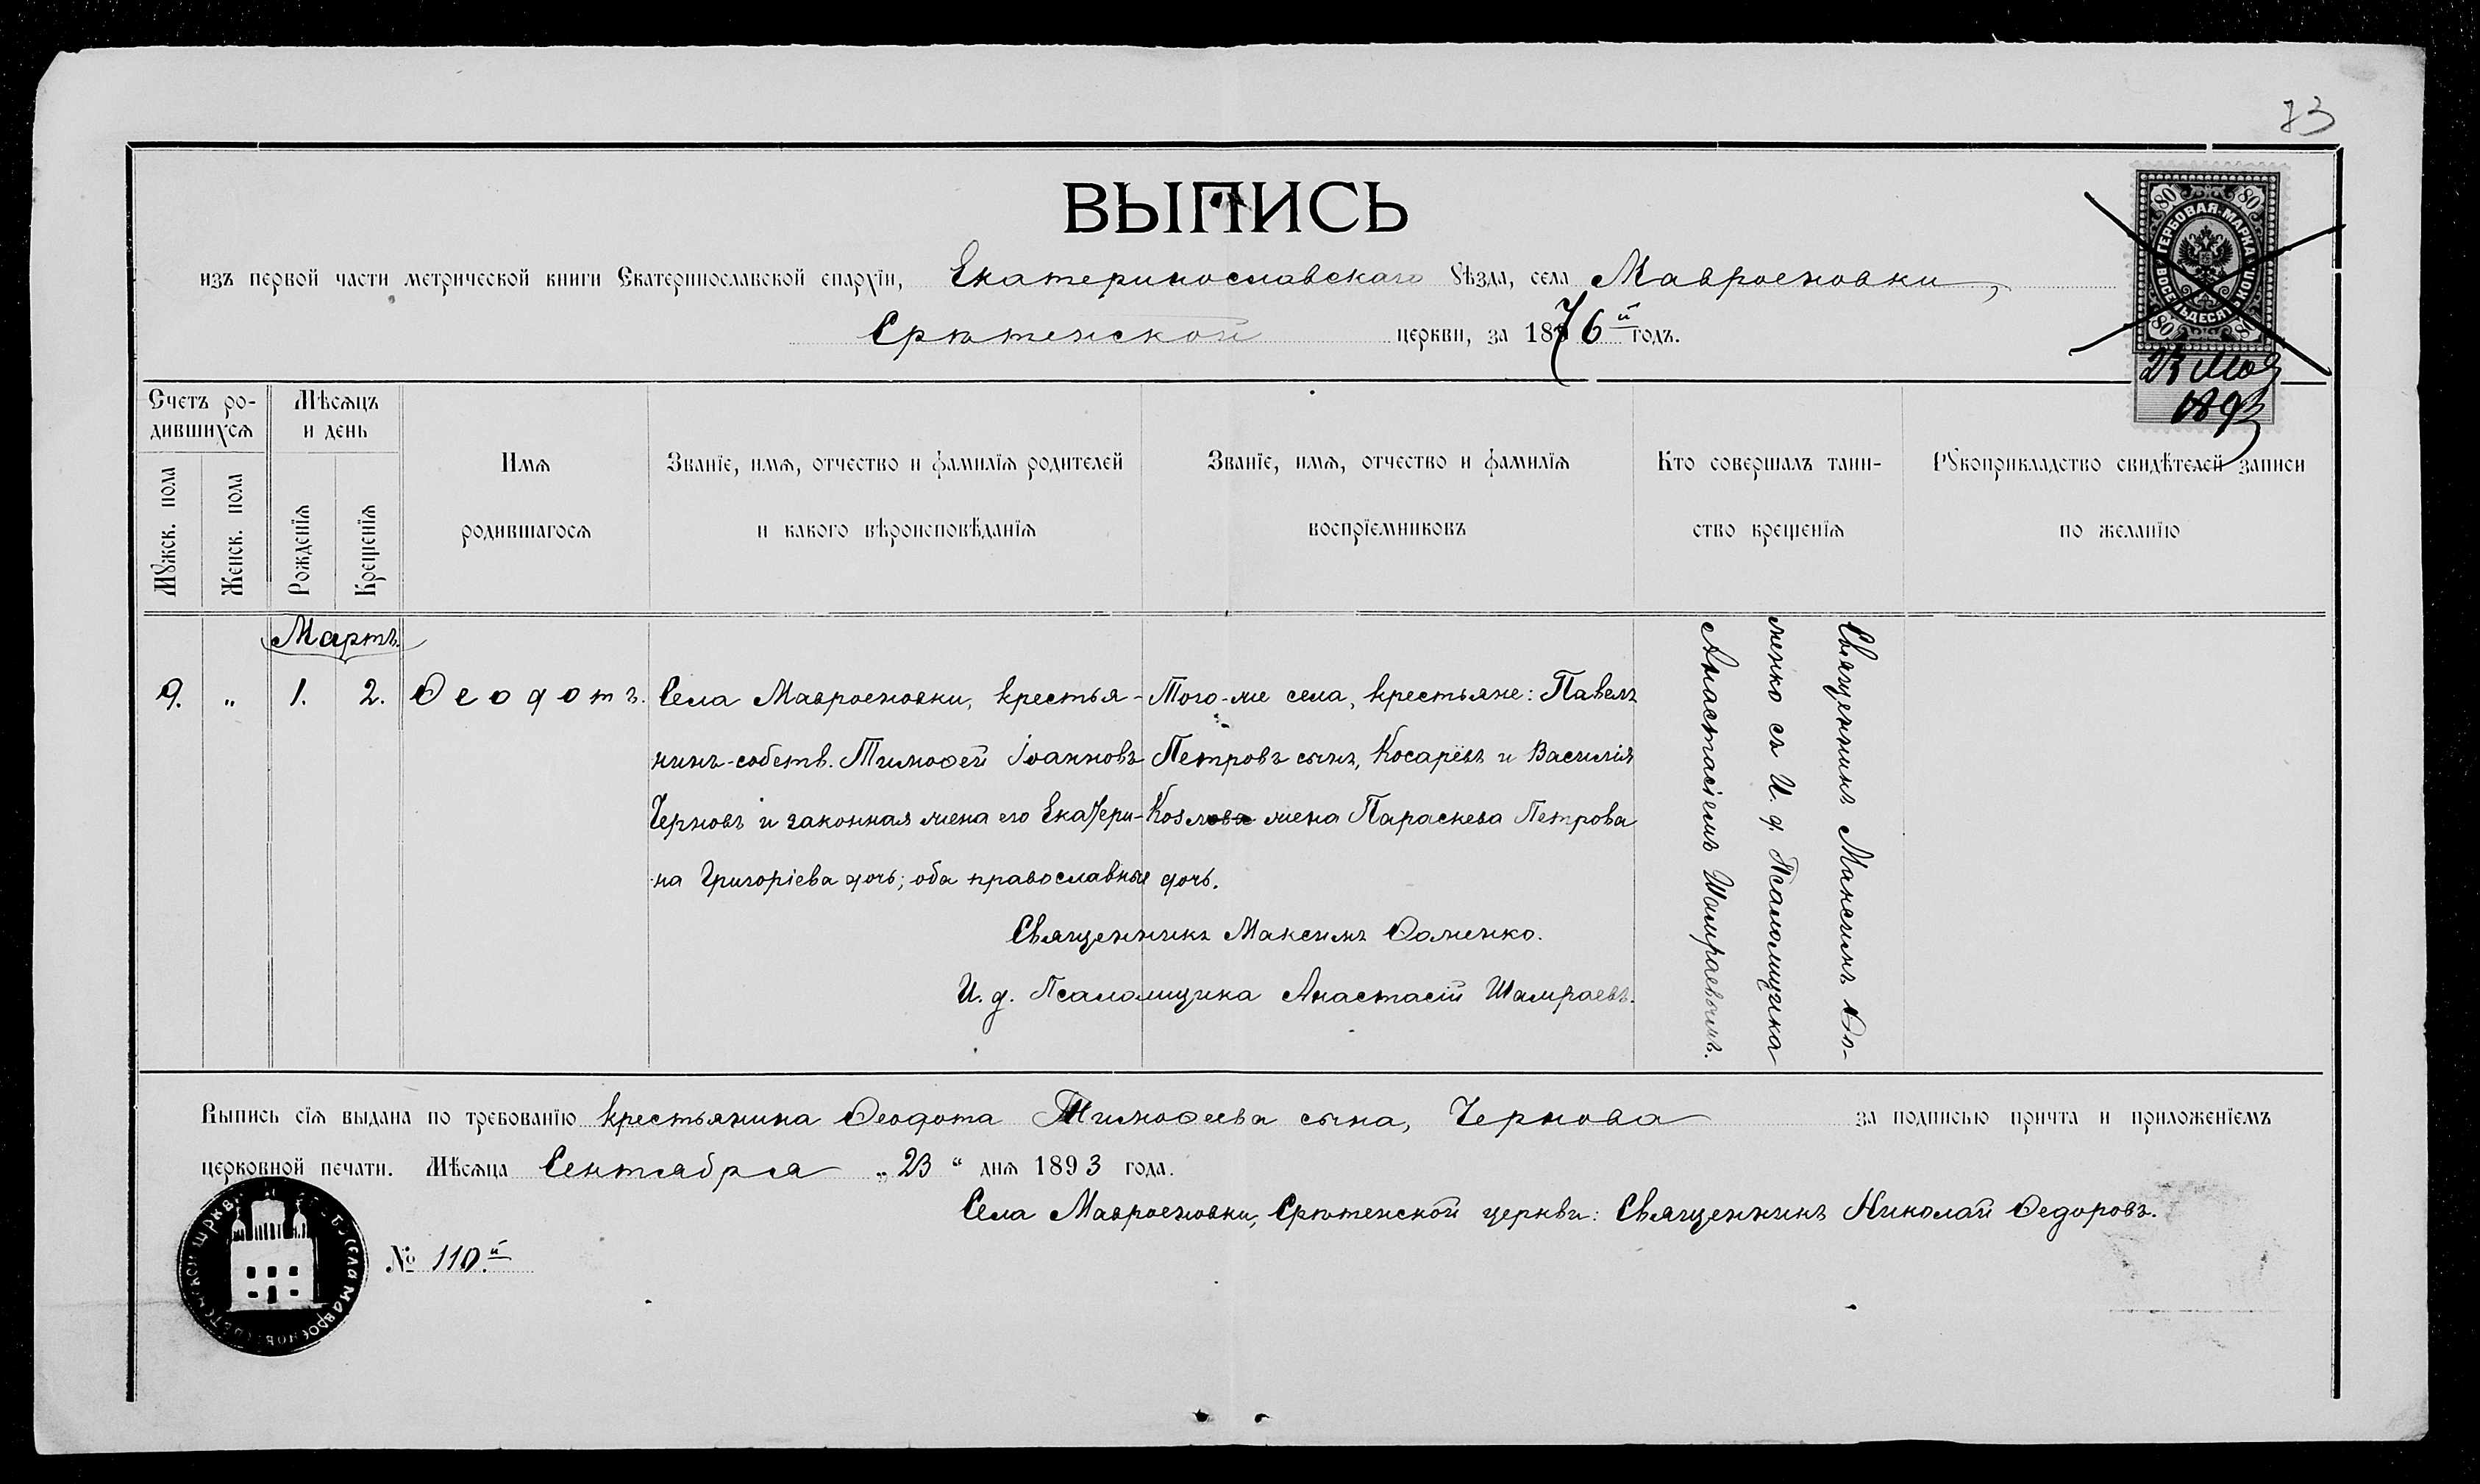 73
ВЫПИСЬ
изъ первой части метрической книги Екатеринославской епархіи, Екатеринославскаго уѣзда, села Мавроеновки,
Срѣтенской церкви, за 1876й годъ.
80 80
ГЕРБОВАЯ МАРКА
ВОСЕМЬДЕСЯТЪ КОП.
80 80
23
1893
Счетъ ро-
дившихся
Мѣсяцъ
и день
Мужск. пола
Женск. пола
Рожденія
Крещенія
Имя
родившагося
Званіе, имя, отчество и фамилія родителей
и какого вѣроисповѣданія
Званіе, имя, отчество и фамилія
воспріемниковъ
Кто совершалъ таин-
ство крещенія
Рукоприкладство свидѣтелей записи
по желанію
Мартъ
9. „ 1. 2. Ѳеодотъ.
Села Мавроеновки, крестья-
нинъ-собств. Тимоѳей Іоанновъ
Черновъ и законная жена его Екатери-
на Григоріева дочь; оба православные
Того-же села, крестьяне: Павелъ
Петровъ сынъ, Косарёвъ и Василія
Козлова жена Параскева Петрова
дочь.
Священникъ Максимъ Ѳоменко.
И. д. Псаломщика Анастасій Шамраевъ.
Священникъ Максимъ Ѳо-
менко съ И. д. Псаломщика
Анастасіемъ Шамраевымъ.
Выпись сія выдана по требованію крестьянина Ѳеодота Тимоѳеева сына, Чернова за подписью причта и приложеніемъ
церковной печати. Мѣсяца Сентября „23“ дня 1893 года.
Села Мавроеновки, Срѣтенской церкви: Священникъ Николай Ѳедоровъ.
№ 110.й